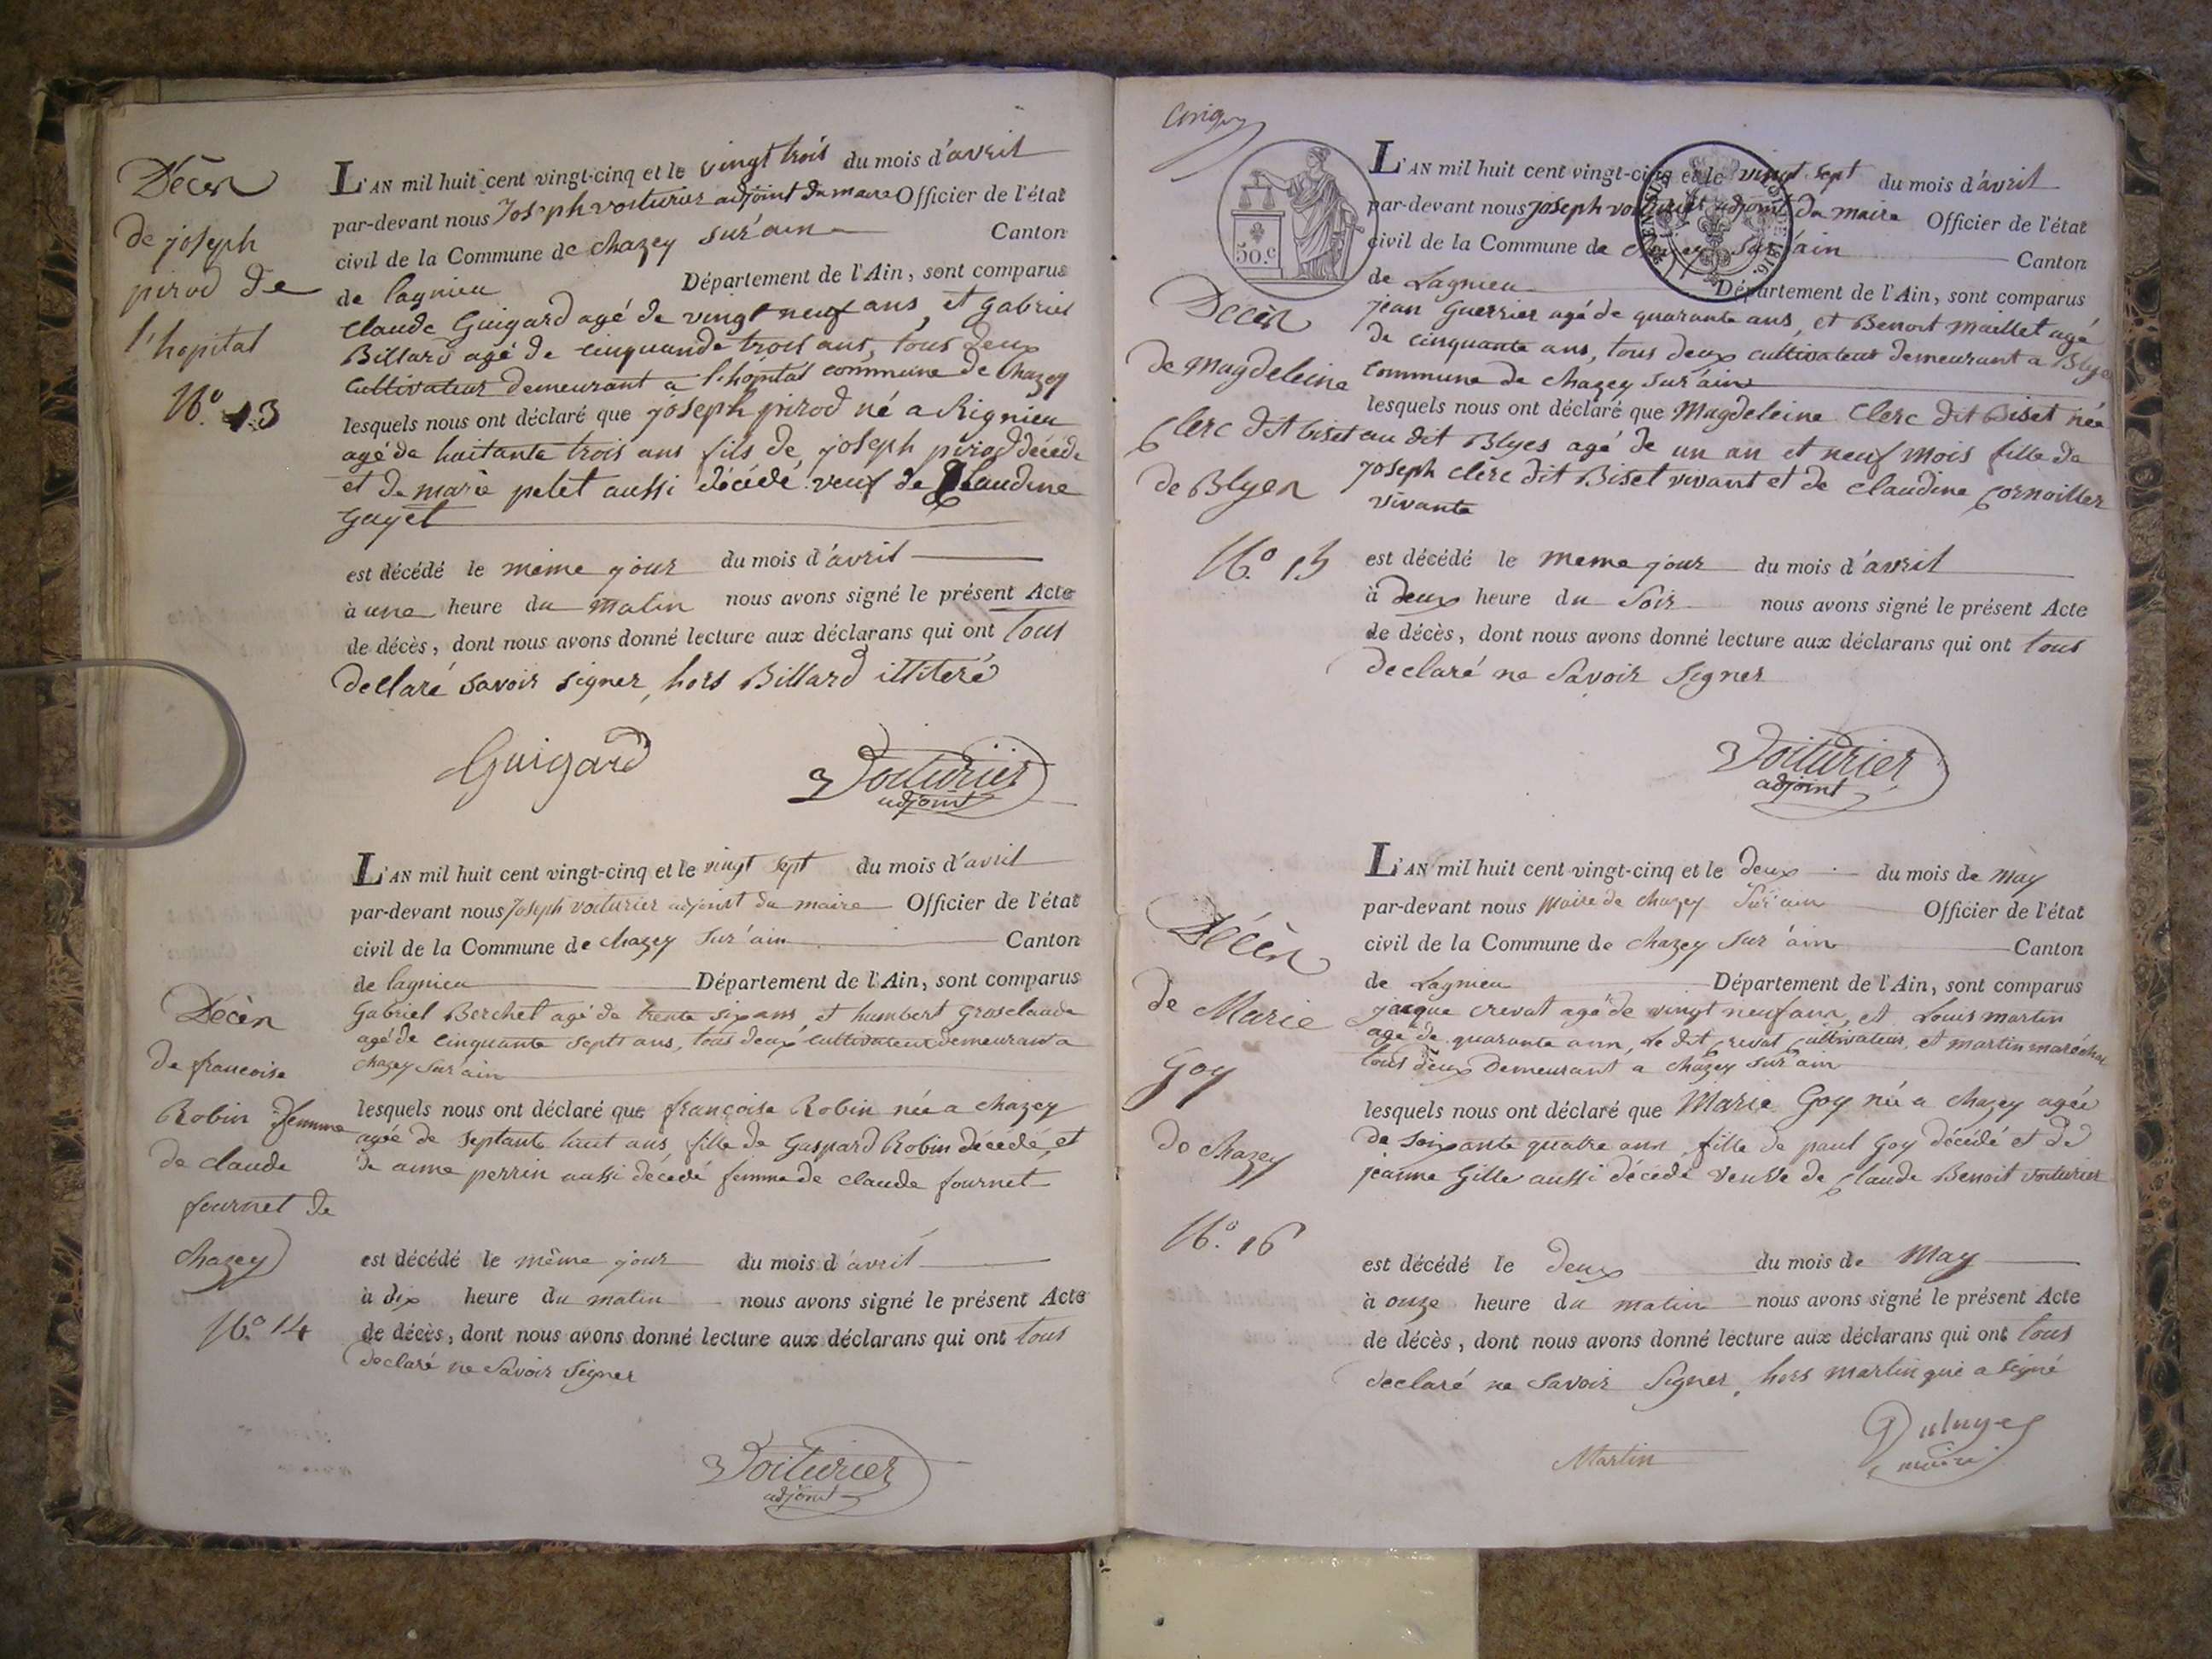 Décès
de joseph
pirod de
l'hopital
N.° 13
L'AN mil huit cent vingt-cinq et le vingt trois du mois d'avril
par-devant nous Joseph voiturier adjoint du maire Officier de l'état
civil de la Commune de chazey sur ain Canton
de lagnieu Département de l'Ain, sont comparus
Claude Guigard agé de vingt neuf ans, et Gabriel
Billard agé de cinquande trois ans, tous deux
Cultivateur demeurant a l'hopital commune de Chazey
lesquels nous ont déclaré que joseph pirod né a Rignieu
agé de huitante trois ans fils de joseph pirod décédé
et de marie pelet aussi décédé veuf de Claudine
Gayet
est décédé le même jour du mois d'avril
à une heure du matin nous avons signé le présent Acte
de décès, dont nous avons donné lecture aux déclarans qui ont tous
declaré savoir signer, hors Billard illiteré
Guigard
Voiturier
adjoint
Décès
de francoise
Robin femme
de claude
fournet de
chazey
N.° 14
L'AN mil huit cent vingt-cinq et le vingt sept du mois d'avril
par-devant nous Joseph voiturier adjoint du maire Officier de l'état
civil de la Commune de chazey sur ain Canton
de lagnieu Département de l'Ain, sont comparus
Gabriel Berchet agé de trente six ans, et humbert grosclaude
agé de cinquante septs ans, tous deux cultivateur demeurant a
chazey sur ain
lesquels nous ont déclaré que françoise Robin née a chazey
agée de septante huit ans, fille de Gaspard Robin décédé, et
de anne perrin aussi décédé femme de claude fournet
est décédé le même jour du mois d'avril
à dix heure du matin nous avons signé le présent Acte
de décès, dont nous avons donné lecture aux déclarans qui ont tous
declaré ne savoir signer
Voiturier
adjoint
50.c
Décès
de Magdeleine
Clerc dit biset
de Blyes
N.° 15
L'AN mil huit cent vingt-cinq et le vingt sept du mois d'avril
par-devant nous joseph voiturier adjoint du maire Officier de l'état
civil de la Commune de chazey sur ain Canton
de Lagnieu Département de l'Ain, sont comparus
jean Guerrier agé de quarante ans, et Benoit Maillet agé
de cinquante ans, tous deux cultivateur demeurant a Blyes
Commune de chazey sur ain
lesquels nous ont déclaré que Magdeleine Clerc dit Biset née
au dit Blyes agé de un an et neuf mois fille de
joseph clerc dit Biset vivant et de claudine Cornoiller
vivante
est décédé le meme jour du mois d'avril
à deux heure du soir nous avons signé le présent Acte
de décès, dont nous avons donné lecture aux déclarans qui ont tous
declaré ne savoir signer
Voiturier
adjoint
Décès
de Marie
Goy
de chazey
N.° 16
L'AN mil huit cent vingt-cinq et le deux du mois de may
par-devant nous Maire de chazey sur ain Officier de l'état
civil de la Commune de chazey sur ain Canton
de Lagnieu Département de l'Ain, sont comparus
jacque crevat agé de vingt neuf ans, et Louis martin
agé de quarante ans, le dit crevat cultivateur, et martin maréchal
tous deux demeurant a chazey sur ain
lesquels nous ont déclaré que Marie Goy née a chazey agée
de soixante quatre ans, fille de paul Goy décédé et de
jeanne Gille aussi décédé veuve de Claude Benoit voiturier
est décédé le deux du mois de May
à onze heure du matin nous avons signé le présent Acte
de décès, dont nous avons donné lecture aux déclarans qui ont tous
declaré ne savoir signer, hors martin qui a signé
Martin
maire